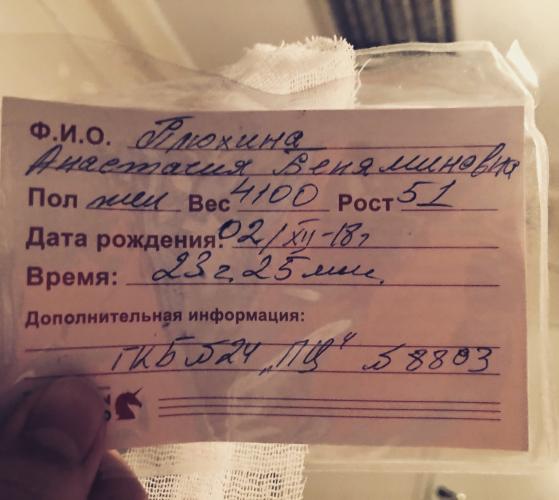 Ф.И.О. Плюхина
Анастасия Вениаминовна
Пол жен Вес 4100 Рост 51
Дата рождения: 02/XII-18г
Время: 23ч 25 мин.
Дополнительная информация:
ГКБ №24 „ПЦ“ №8803